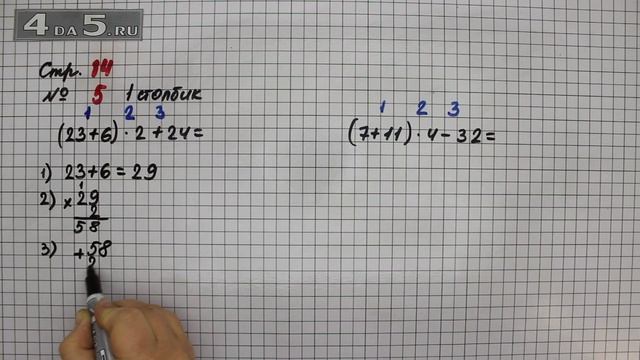 4 DA 5.RU
Стр. 14
№ 5 1 столбик
1 2 3
(23+6) · 2 + 24 =
1) 23 + 6 = 29
1
2) × 29
2
58
3) + 58
2
1 2 3
(7+11) · 4 - 32 =